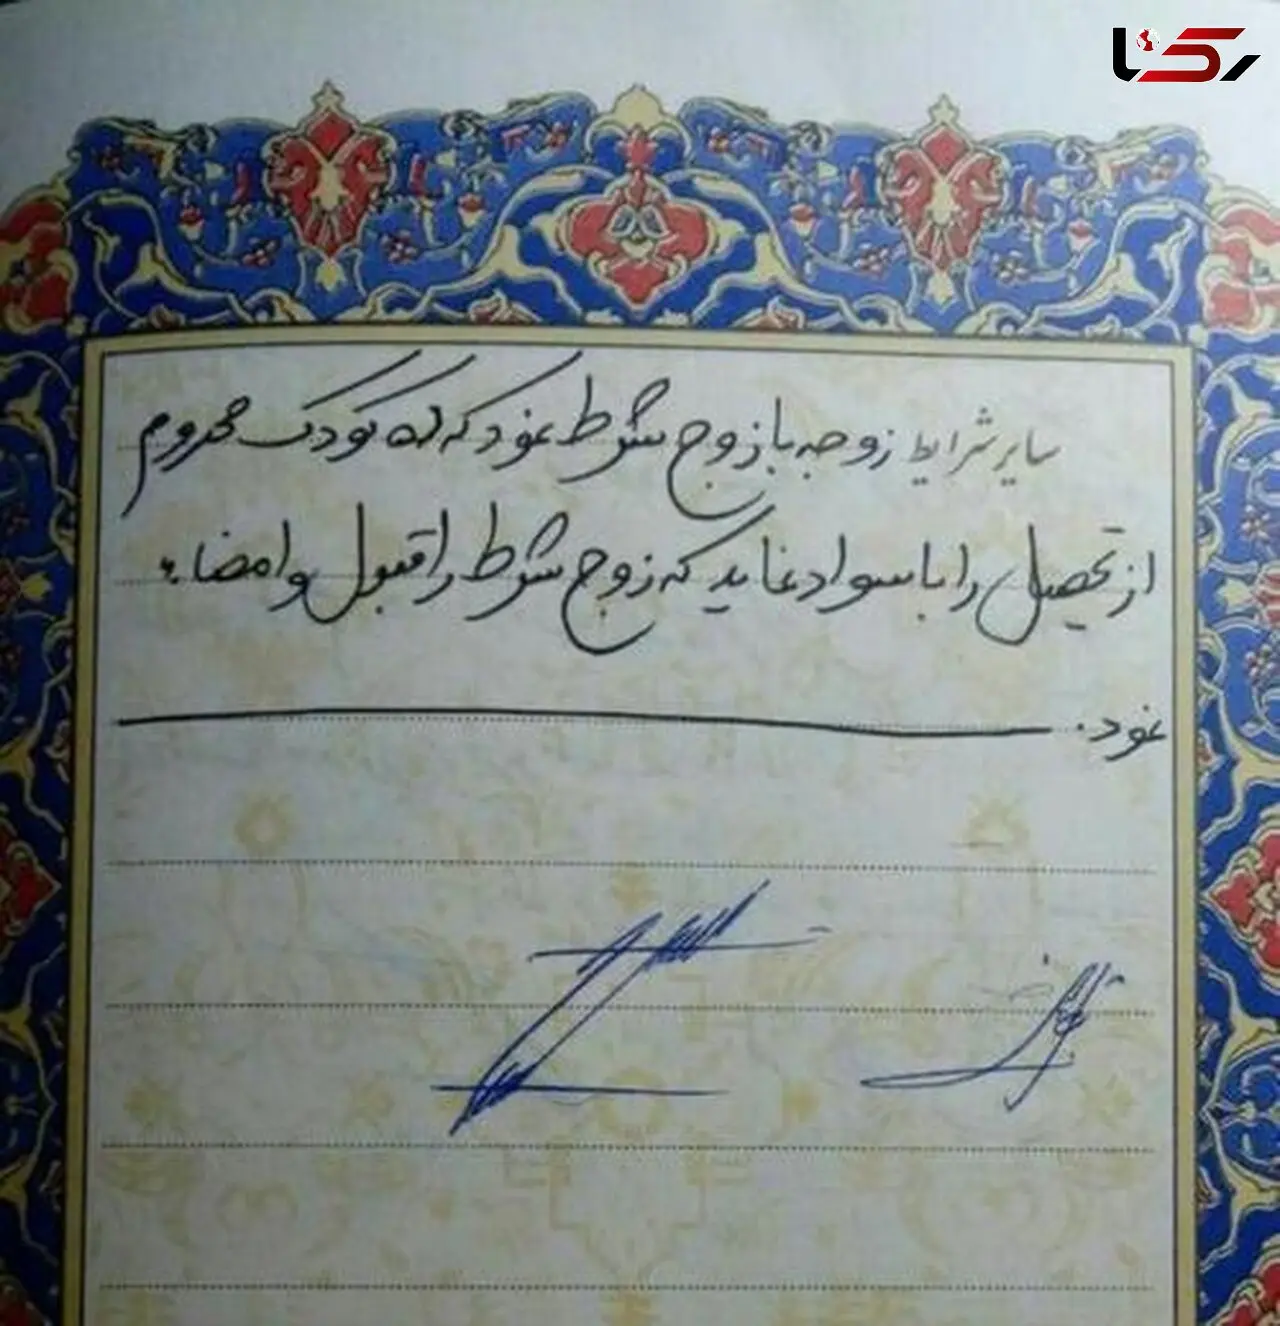 رکنا
سایر شرایط زوجه با زوج شرط نمود که ده کودک محروم
از تحصیل را باسواد نماید که زوج شرط را قبول و امضاء
نمود.